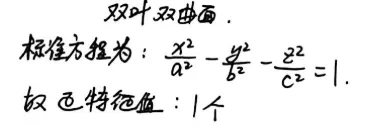 双叶双曲面.
标准方程为: x²/a² - y²/b² - z²/c² = 1.
故正特征值: 1个